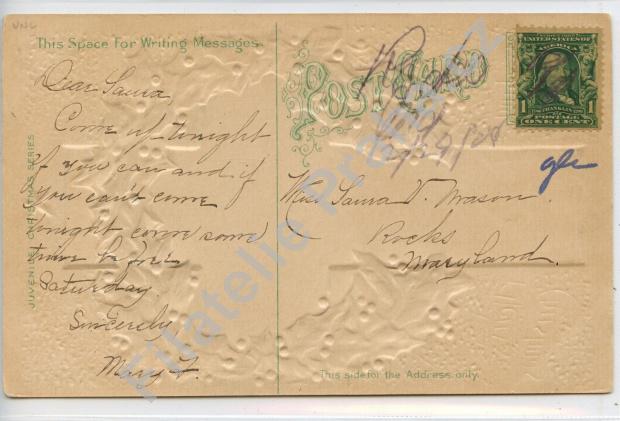 This Space For Writing Messages.
Dear Laura,
Come up tonight
if you can and if
you can't come
tonight come some
time before
Saturday.
Sincerely
Mary F.
JUVENILE CHRISTMAS SERIES
POST CARD
UNITED STATES OF AMERICA
FRANKLIN
1 1
POSTAGE
ONE CENT
Miss Laura V. Mason.
Rocks
Maryland.
This side for the Address only.
Filatelie Praha